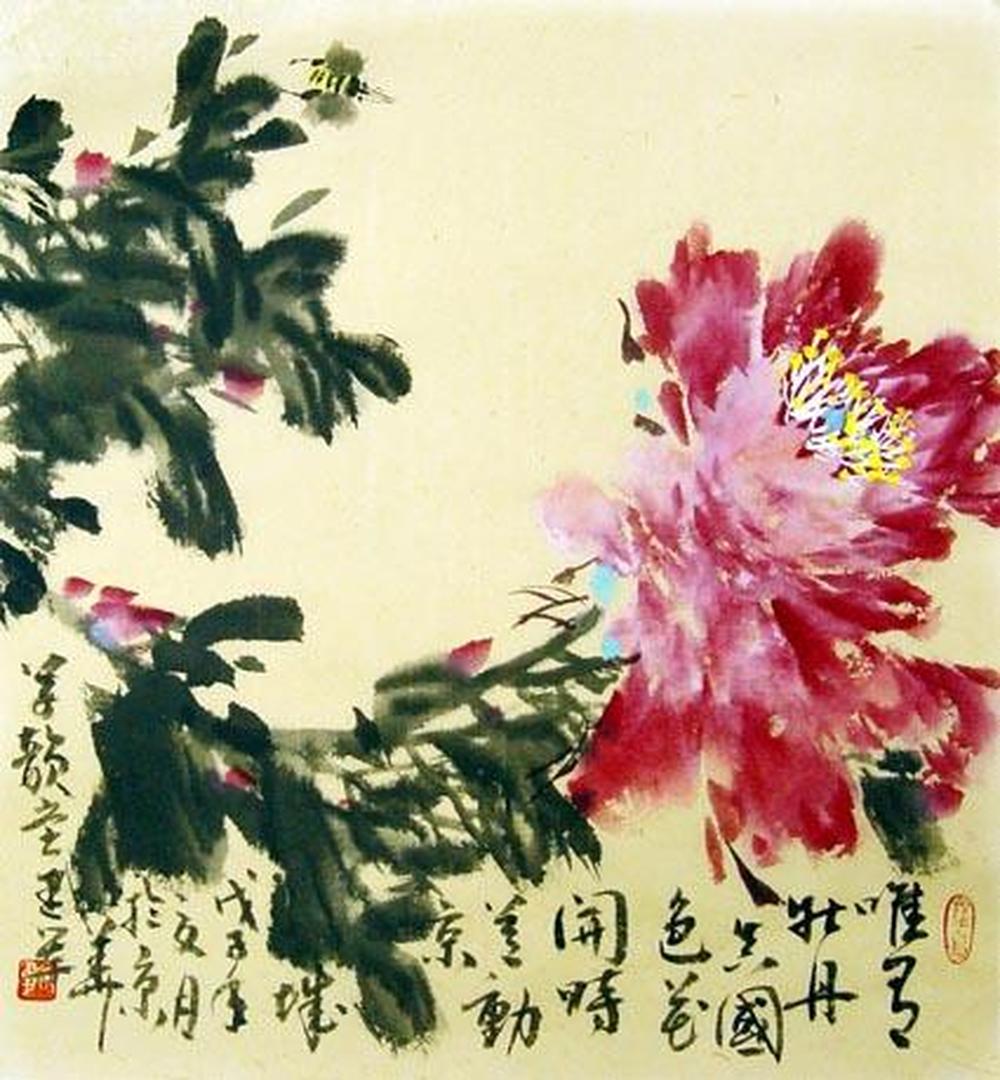 唯有
牡丹
真國
色花
開時
節動
京
城
戊子年
月
於京
華
韻堂